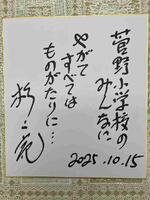 菅野小学校の
みんなに
やがて
すべては
ものがたりに…
2025.10.15